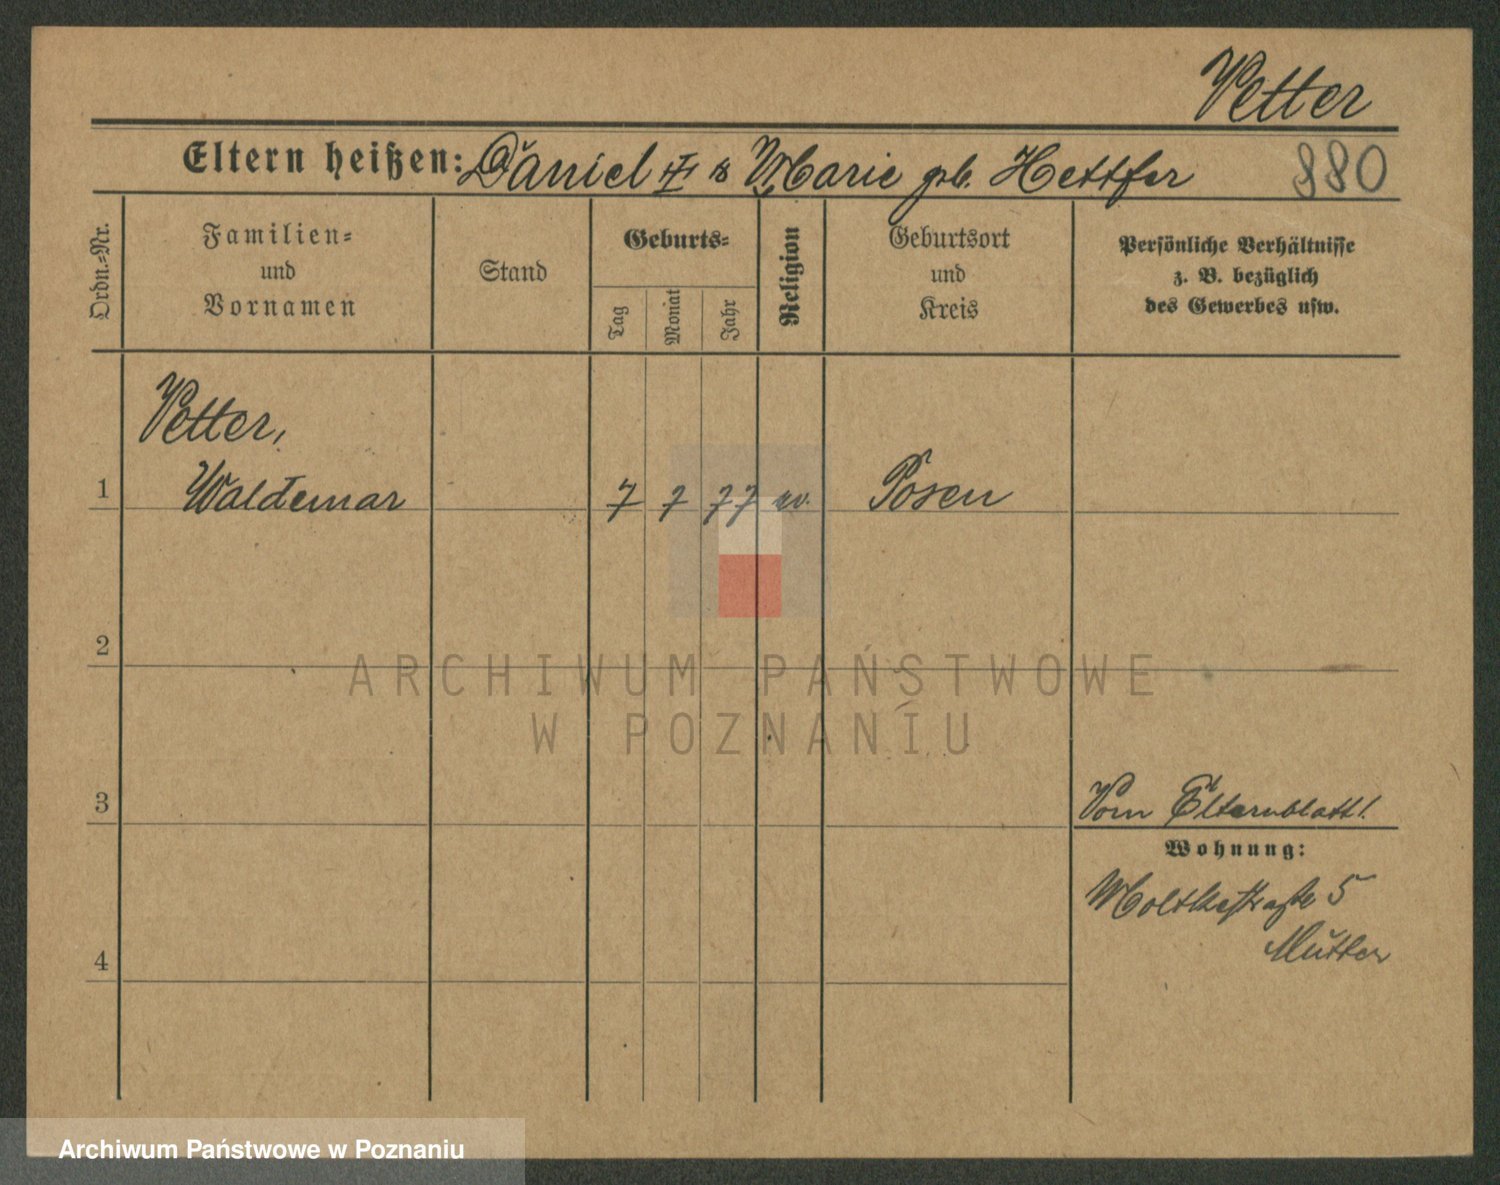 Vetter
Eltern heißen: Daniel u Marie geb.
880
Ordn.-Nr.
Familien-
und
Vornamen
Stand
Geburts-
Tag
Monat
Jahr
Religion
Geburtsort
und
Kreis
Persönliche Verhältnisse
z. B. bezüglich
des Gewerbes usw.
Vetter,
1 Waldemar 7 7 77 ev. Posen
2
3
Vom Elternblatt!
Wohnung:
Moltkestraße 5
Mutter
4
ARCHIWUM PAŃSTWOWE
W POZNANIU
Archiwum Państwowe w Poznaniu